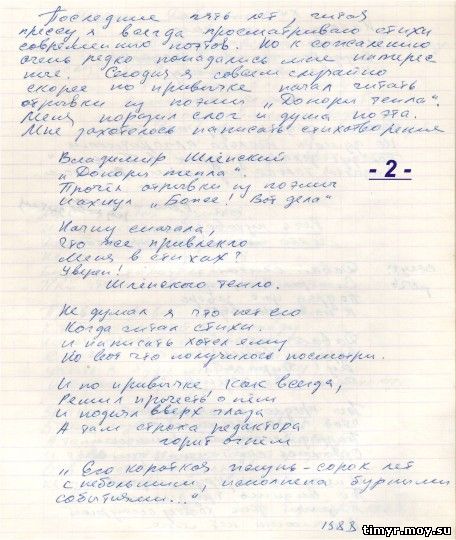 Последние пять лет, читая
прессу я всегда просматриваю стихи
современных поэтов. Но к сожалению
очень редко попадались мне интерес
ные. Сегодня я совсем случайно
скорее по привычке начал читать
отрывки из поэмы „Донори тепла“.
Меня поразил слог и дума поэта.
Мне захотелось написать стихотворение
Владимир Шленский
„Донори тепла“.
- 2 -
Прочёл отрывки из поэмы
И ахнул „Боже! Вот дела“
Начну сначала,
Что же привлекло
Меня в стихах?
Уверен!
Шленского тепло.
Не думал я что нет его
Когда читал стихи.
И написать хотел ему
Но вот что получилось посмотри.
И по привычке, как всегда,
Решил прочесть о нём
И поднял вверх глаза
А там строка редактора
горит огнём
„Его короткая жизнь – сорок лет
с небольшим, исполнена бурными
событиями..."
1988
timyr.moy.su